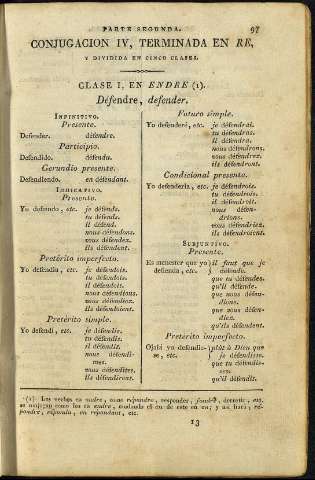 PARTE SEGUNDA. 97
CONJUGACION IV, TERMINADA EN RE,
Y DIVIDIDA EN CINCO CLASES.
CLASE I, EN ENDRE (1).
Défendre, defender.
INFINITIVO.
Presente.
Defender. défendre.
Participio.
Defendido. défendu.
Gerundio presente.
Defendiendo. en défendant.
INDICATIVO.
Presente.
Yo defiendo, etc. je défends.
tu défends.
il défend.
nous défendons.
vous défendez.
ils défendent.
Pretérito imperfecto.
Yo defendia, etc. je défendois.
tu défendois.
il défendoit.
nous défendions.
vous défendiez.
ils défendoient.
Pretérito simple.
Yo defendí, etc. je défendis.
tu défendis.
il défendit.
nous défendi-
mes.
vous défendites.
ils défendirent.
Futuro simple.
Yo defenderé, etc. je défendrai.
tu défendras.
il défendra.
nous défendrons.
vous défendrez.
ils défendront.
Condicional presente.
Yo defenderia, etc. je défendrois.
tu défendrois.
il défendroit.
nous défen-
drions.
vous défendriez.
ils défendroient.
SUBJUNTIVO.
Presente.
Es menester que yo il faut que je
defienda, etc. défende.
que tu défendes.
qu'il défende.
que nous défen-
dions.
que vous défen-
diez.
qu'ils défendent.
Pretérito imperfecto.
Ojalá yo defendie- plût à Dieu que
se, etc. je défendisse.
que tu défendis-
ses.
qu'il défendît.
(1) Los verbos en ondre, como répondre, responder, derretir, etc.
se conjugan como los en endre, mudando el en de este en on; y así hará, ré-
pondre, répondu, en répondant, etc.
13